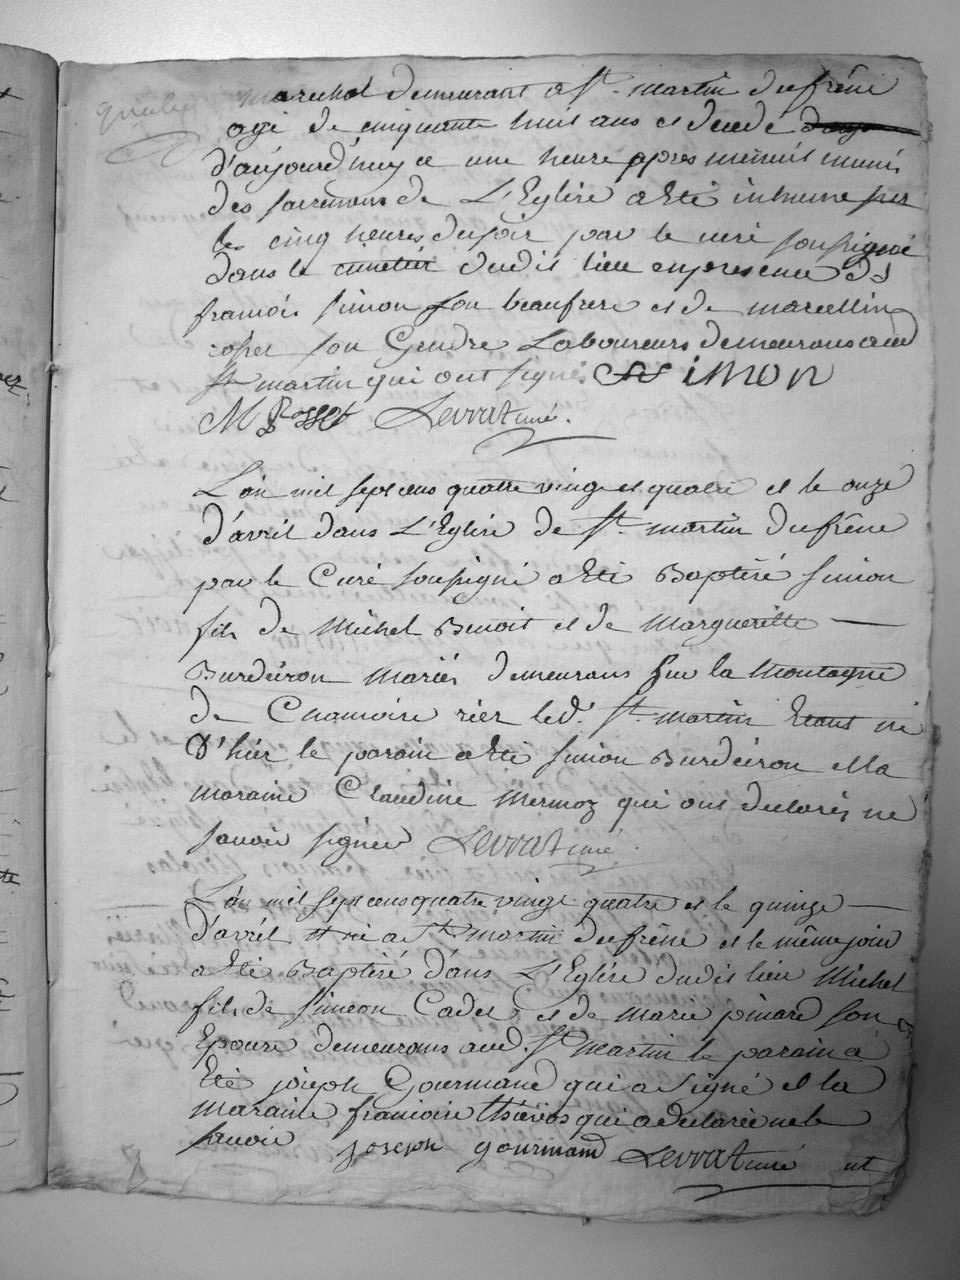 marechal demeurant a St. martin dufrêne
agé de cinquante huit ans et decedé
d'aujourd'huy a une heure apres minuit muni
des sacremens de L'Eglise a Eté inhumé sur
les cinq heures dusoir par le curé soussigné
dans le cimetier dudit lieu enpresence de
francois simon son beaufrere et de marcellin
rosset son Gendre Laboureurs demeurans aud
St martin qui ont signés Simon
M Rosset Levrat curé.
L'an mil sept cens quatre vingt et quatre et le onze
d'avril dans L'Eglise de St. martin dufrêne
par le Curé soussigné a Eté Baptisé simon
fils de Michel Benoit et de Margueritte
Burdeiron mariés demeurans sur la Montagne
de Chamoise rier led. St. martin Etant né
d'hier le parain a Eté simon Burdeiron et la
maraine Claudine Mermoz qui ont declarés ne
savoir signer Levrat curé.
L'an mil sept cens quatre vingt quatre et le quinze
d'avril est né a St martin dufrêne et le même jour
a Eté Baptisé dans L'Eglise dudit lieu Michel
fils de simeon Cadet et de marie pinard son
Epouse demeurans aud. St martin le parain a
Eté joseph Gourmand qui a signé et la
maraine francoise qui a declarée ne le
savoir joseph gourmand Levrat curé